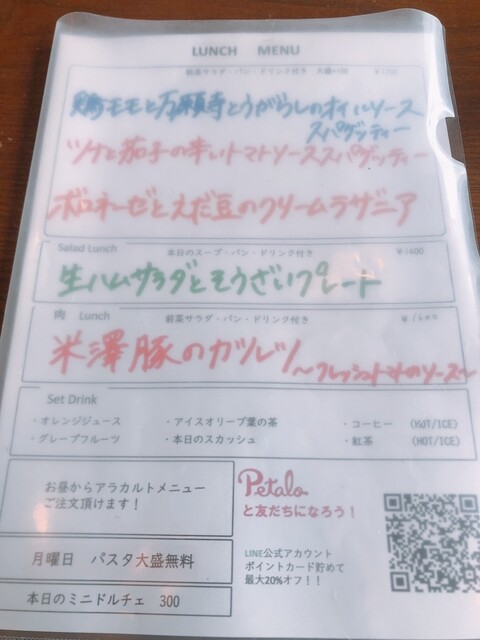 LUNCH MENU
前菜サラダ・パン・ドリンク付き 大盛+100
鶏モモと万願寺とうがらしのオイルソース
スパゲッティー
ツナと茄子の辛いトマトソーススパゲッティー
ボロネーゼとえだ豆のクリームラザニア
Salad Lunch 本日のスープ・パン・ドリンク付き ¥1400
生ハムサラダとそうざいプレート
肉 Lunch 前菜サラダ・パン・ドリンク付き
米澤豚のカツレツ
〜フレッシュトマトのソース〜
Set Drink
・オレンジジュース ・アイスオリーブ葉の茶 ・コーヒー (HOT/ICE)
・グレープフルーツ ・本日のスカッシュ ・紅茶 (HOT/ICE)
お昼からアラカルトメニュー
ご注文頂けます！
月曜日 パスタ大盛無料
本日のミニドルチェ 300
Petalo
と友だちになろう！
LINE公式アカウント
ポイントカード貯めて
最大20%オフ！！